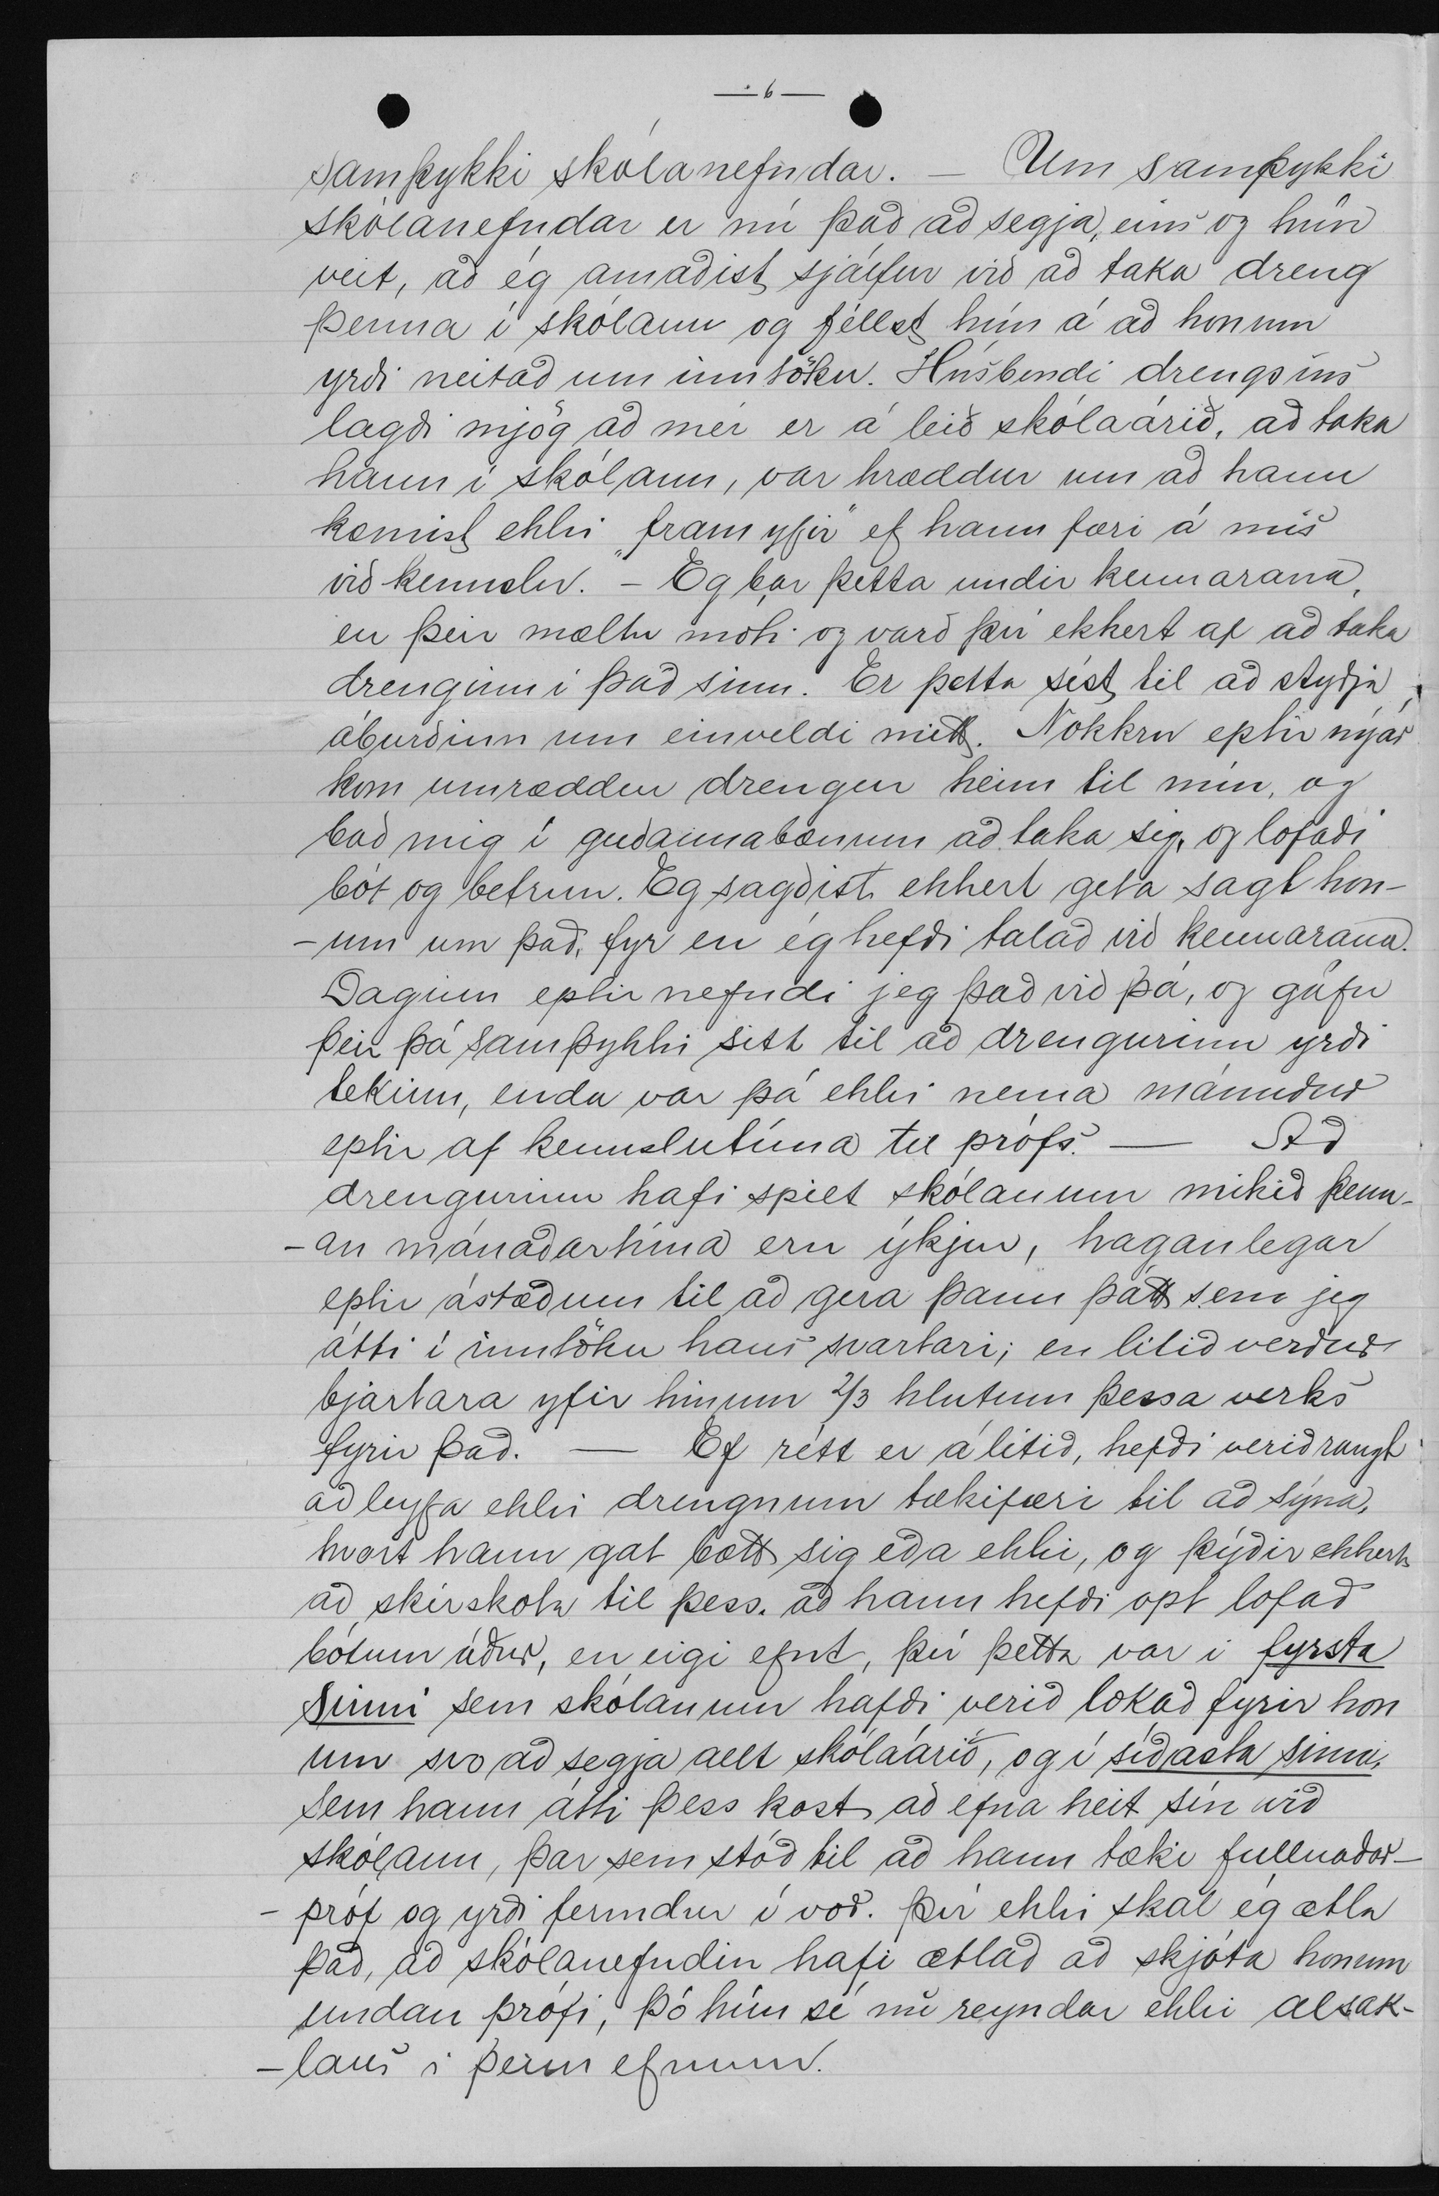 — 6 —
samþykki skólanefndar. — Um samþykki
skólanefndar er nú það að segja, eins og hún
veit, að ég amaðist sjálfur við að taka dreng
þenna í skólann og féllst hún á að honum
yrði neitað um inntöku. Húsbondi drengsins
lagði mjög að mér er á leið skólaárið, að taka
hann í skólann, var hræddur um að hann
kæmist ekki "fram yfir" ef hann færi á mis
við kennslu. - Eg bar þetta undir kennarana,
en þeir mæltu móti og varð því ekkert af að taka
drenginn í það sinn. Er þetta síst til að styðja
áburðinn um einveldi mitt. Nokkru eptir nýár
kom umræddur drengur heim til mín, og
bað mig í guðannabænum að taka sig, og lofaði
bót og betrun. Eg sagðist ekkert geta sagt hon-
-um um það, fyr en ég hefði talað við kennarana.
Daginn eptir nefndi jeg það við þá, og gáfu
þeir þá samþykki sitt til að drengurinn yrði
tekinn, enda var þá ekki nema mánuður
eptir af kennslutíma til prófs. — Að
drengurinn hafi spilt skólanum mikið þenn-
-an mánaðartíma eru ýkjur, haganlegar
eptir ástæðum til að gera þann þátt sem jeg
átti í inntöku hans svartari; en lítið verður
bjartara yfir hinum 2/3 hlutum þessa verks
fyrir það. — Ef rétt er álitið, hefði verið rangt
að leyfa ekki drengnum tækifæri til að sýna,
hvort hann gat bætt sig eða ekki, og þýðir ekkert
að skírskota til þess, að hann hefði opt lofað
bótum áður, en eigi efnt, því þetta var í fyrsta
sinni sem skólanum hafði verið lokað fyrir hon
um svo að segja allt skólaárið, og í síðasta sinni,
sem hann átti þess kost að efna heit sín við
skólann, þar sem stóð til að hann tæki fullnaðar-
- próf og yrði fermdur í vor. Því ekki skal ég ætla
það, að skólanefndin hafi ætlað að skjóta honum
undan prófi, þó hún sé nú reyndar ekki alsak-
-laus í þeim efnum.